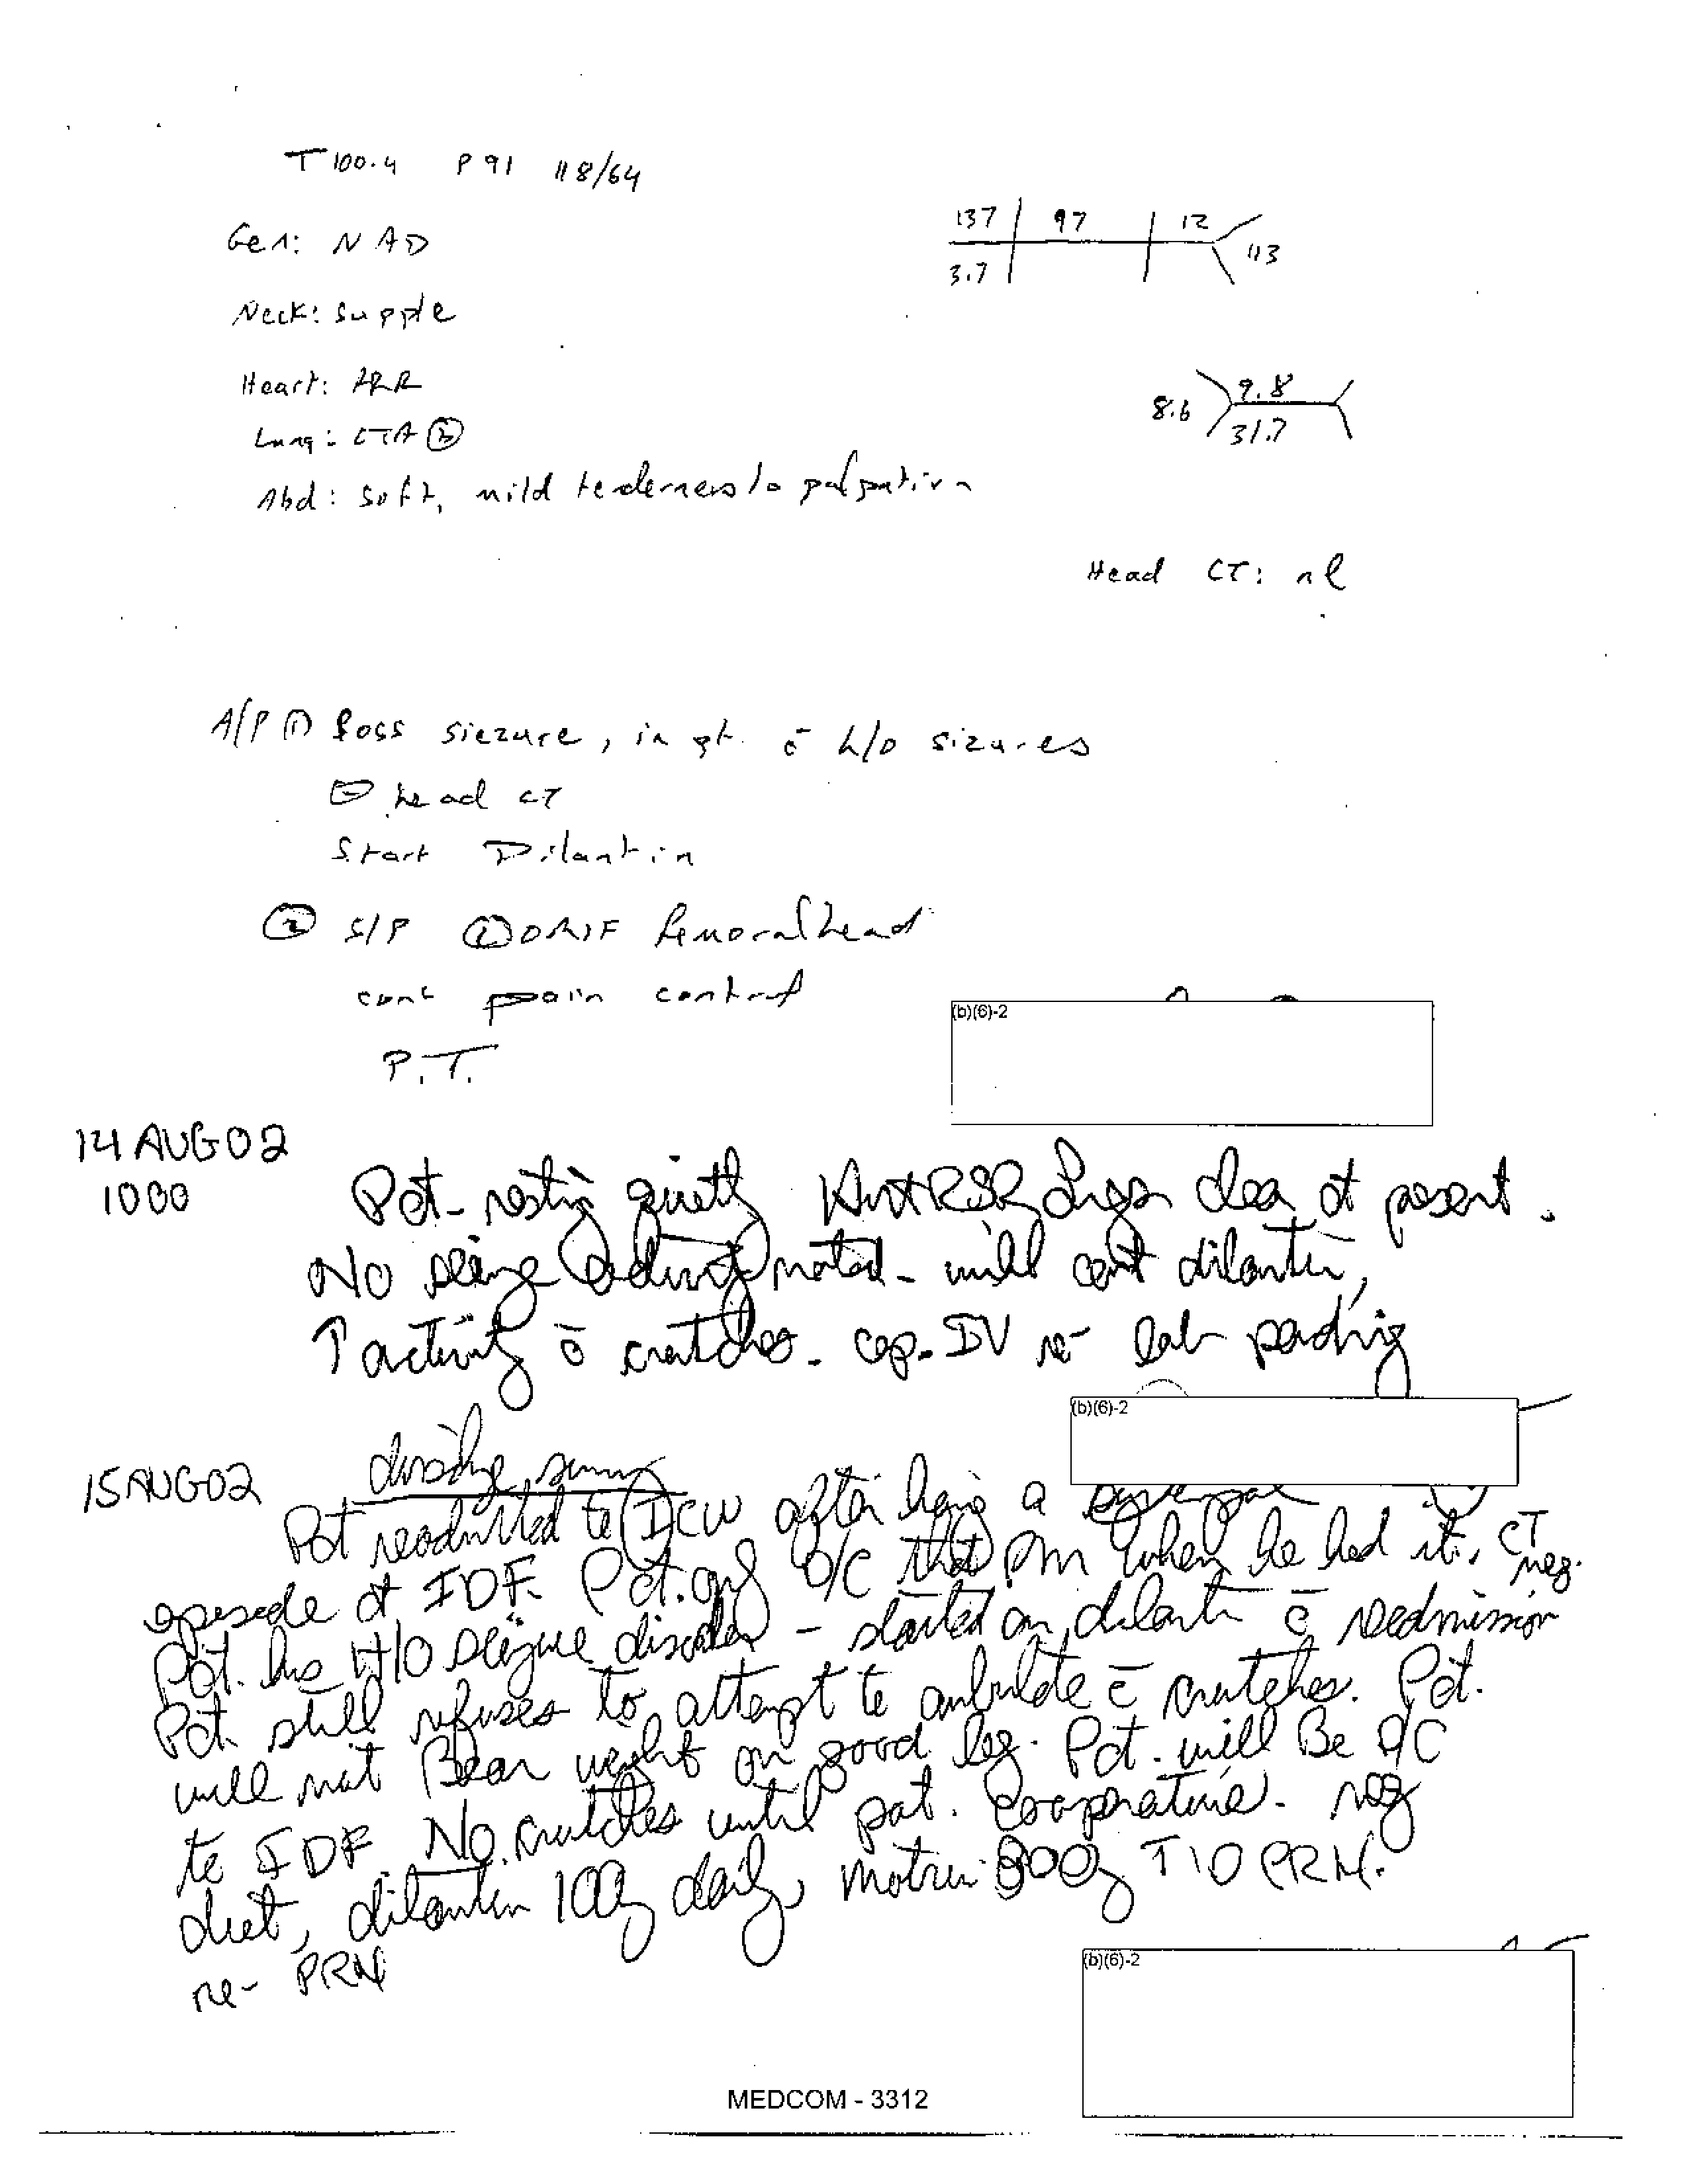 T 100.4 P 91 118/64
137 97 12
Gen: NAD
3.7 113
Neck: supple
Heart: RRR
9.8
8.6
31.7
Lung: CTA (B)
Abd: Soft, mild tenderness to palpation
Head CT: nl
A/P ① Poss siezure, in pt. c̄ h/o sizures
⊖ head CT
Start Dilantin
② S/P ORIF femoral head
cont pain control
P.T.
(b)(6)-2
14 AUG 02
1000
Pat- resting quietly Lungs clear at present.
No seizure activity noted - will cont dilantin,
↑ activity c̄ crutches. cap. IV re- lab pending
(b)(6)-2
15 AUG 02 discharge summ
Pat readmitted to ICW after having a
episode at IDF. Pat. only D/C that pm when he had it. CT neg.
Pat. has H/O seizure disorder - started on dilantin c̄ readmission
Pat still refuses to attempt to ambulate c̄ crutches. Pat.
will not Bear weight on good leg. Pat. will Be D/C
to IDF. No crutches until pat. cooperative. reg
diet, dilantin daily, motrin PRN.
re- PRN
(b)(6)-2
MEDCOM - 3312